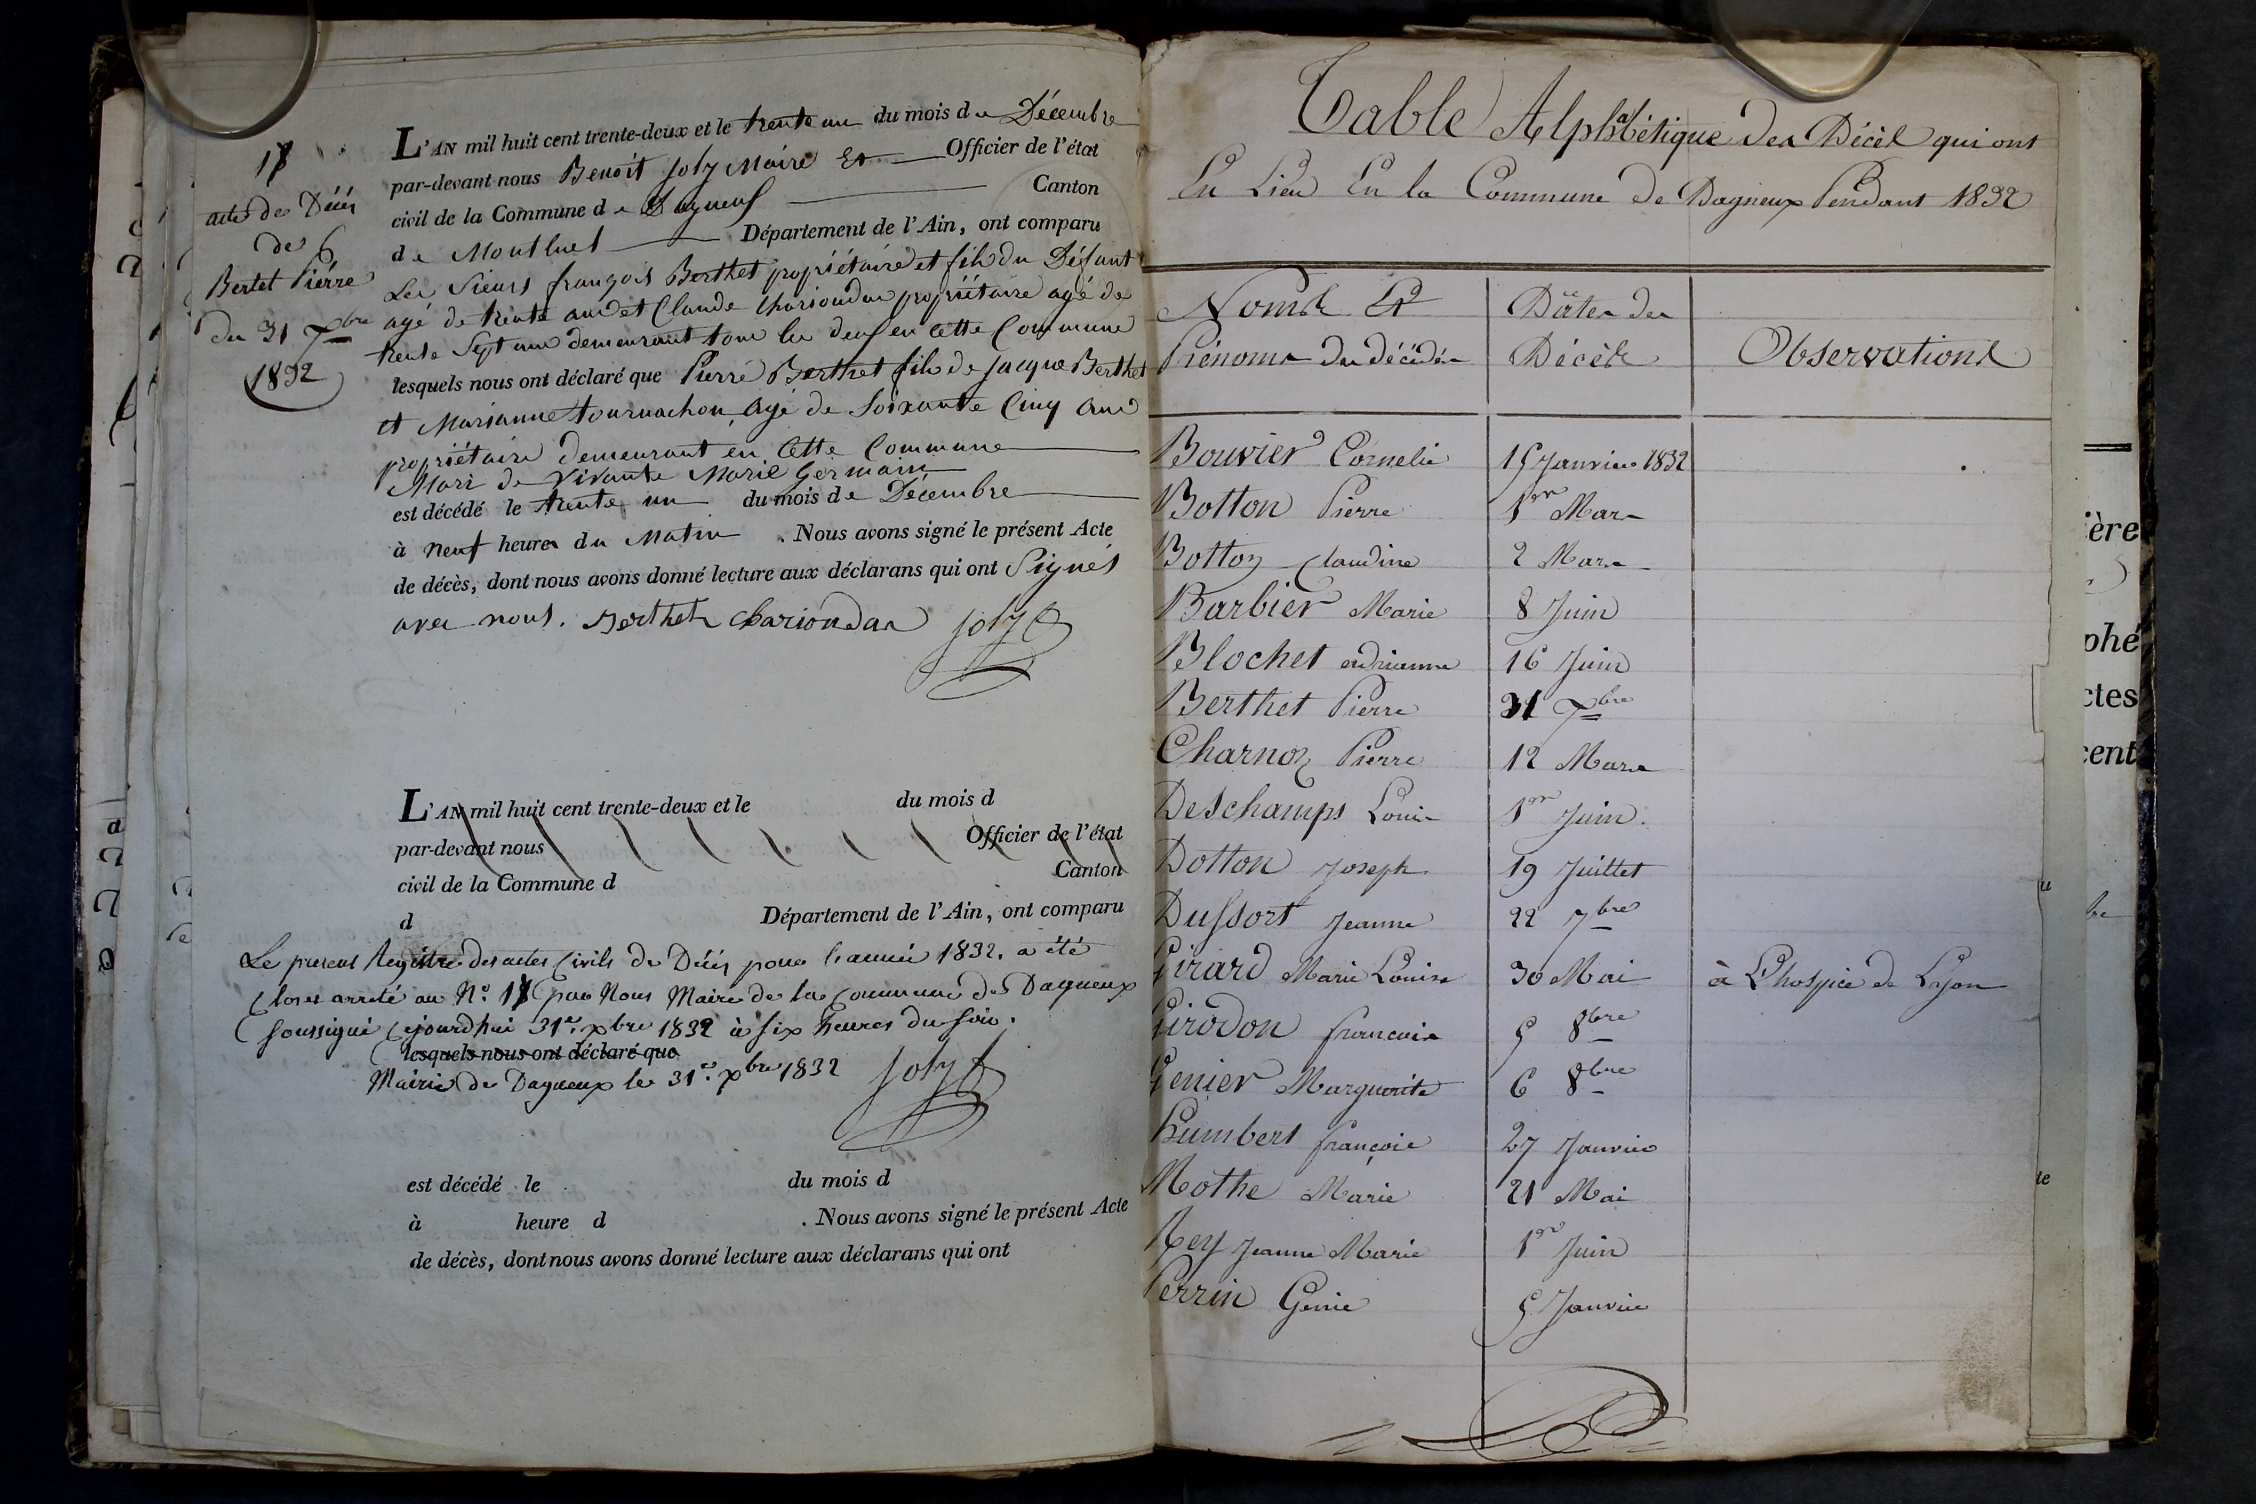 18
acte de Décès
de
Bertet Piérre
du 31 Xbre
1832
L'AN mil huit cent trente-deux et le trente un du mois de Décembre
par-devant nous Benoît Joly Maire Et Officier de l'état
civil de la Commune de Dagneux Canton
de Montluel Département de l'Ain, ont comparu
Les Sieurs françois Berthet propriétaire et fils du Défunt
agé de trente ans et Claude Chariondas propriétaire agé de
trente Sept ans demeurant tous les deux en cette Commune
lesquels nous ont déclaré que Pierre Berthet fils de Jacque Berthet
et Marianne tournachon, Agé de Soixante Cinq ans
propriétaire demeurant en Cette Commune
Mari de Vivante Marie Germain
est décédé le trente un du mois de Décembre
à neuf heures du Matin . Nous avons signé le présent Acte
de décès, dont nous avons donné lecture aux déclarans qui ont Signés
avec nous. Berthet Chariondas Joly
L'AN mil huit cent trente-deux et le du mois d
par-devant nous Officier de l'état
civil de la Commune d Canton
d Département de l'Ain, ont comparu
Le present Registre des actes Civils de Décès pour l'année 1832. a été
Clos et arrêté au N° 18 par Nous Maire de la Commune de Dagneux
soussigné Cejourdhui 31e xbre 1832 à six heures du soir.
lesquels nous ont déclaré que
Mairie de Dagneux le 31e xbre 1832 Joly
est décédé le du mois d
à heure d . Nous avons signé le présent Acte
de décès, dont nous avons donné lecture aux déclarans qui ont
Table Alphabétique des Décès qui ont
Eu Lieu En la Commune de Dagneux Pendant 1832
Noms Et Dâtes des
Prénoms des décédés Décès Observations
Bouvier Cornelie 15 Janvier 1832
Botton Pierre 1er Mars
Botton Claudine 2 Mars
Barbier Marie 8 Juin
Blochet andrienne 16 Juin
Berthet Pierre 31 Xbre
Charnoz Pierre 12 Mars
Deschamps Louis 1er Juin
Dotton Joseph 19 Juillet
Dussort Jeanne 22 7bre
Girard Marie Louise 30 Mai à L'hospice de Lyon
Girodon francois 5 8bre
Genier Marguerite 6 8bre
Humbert françois 27 Janvier
Mothe Marie 21 Mai
Rey Jeanne Marie 1er Juin
Perrin Genie 5 Janvier
ière
phé
ctes
cent